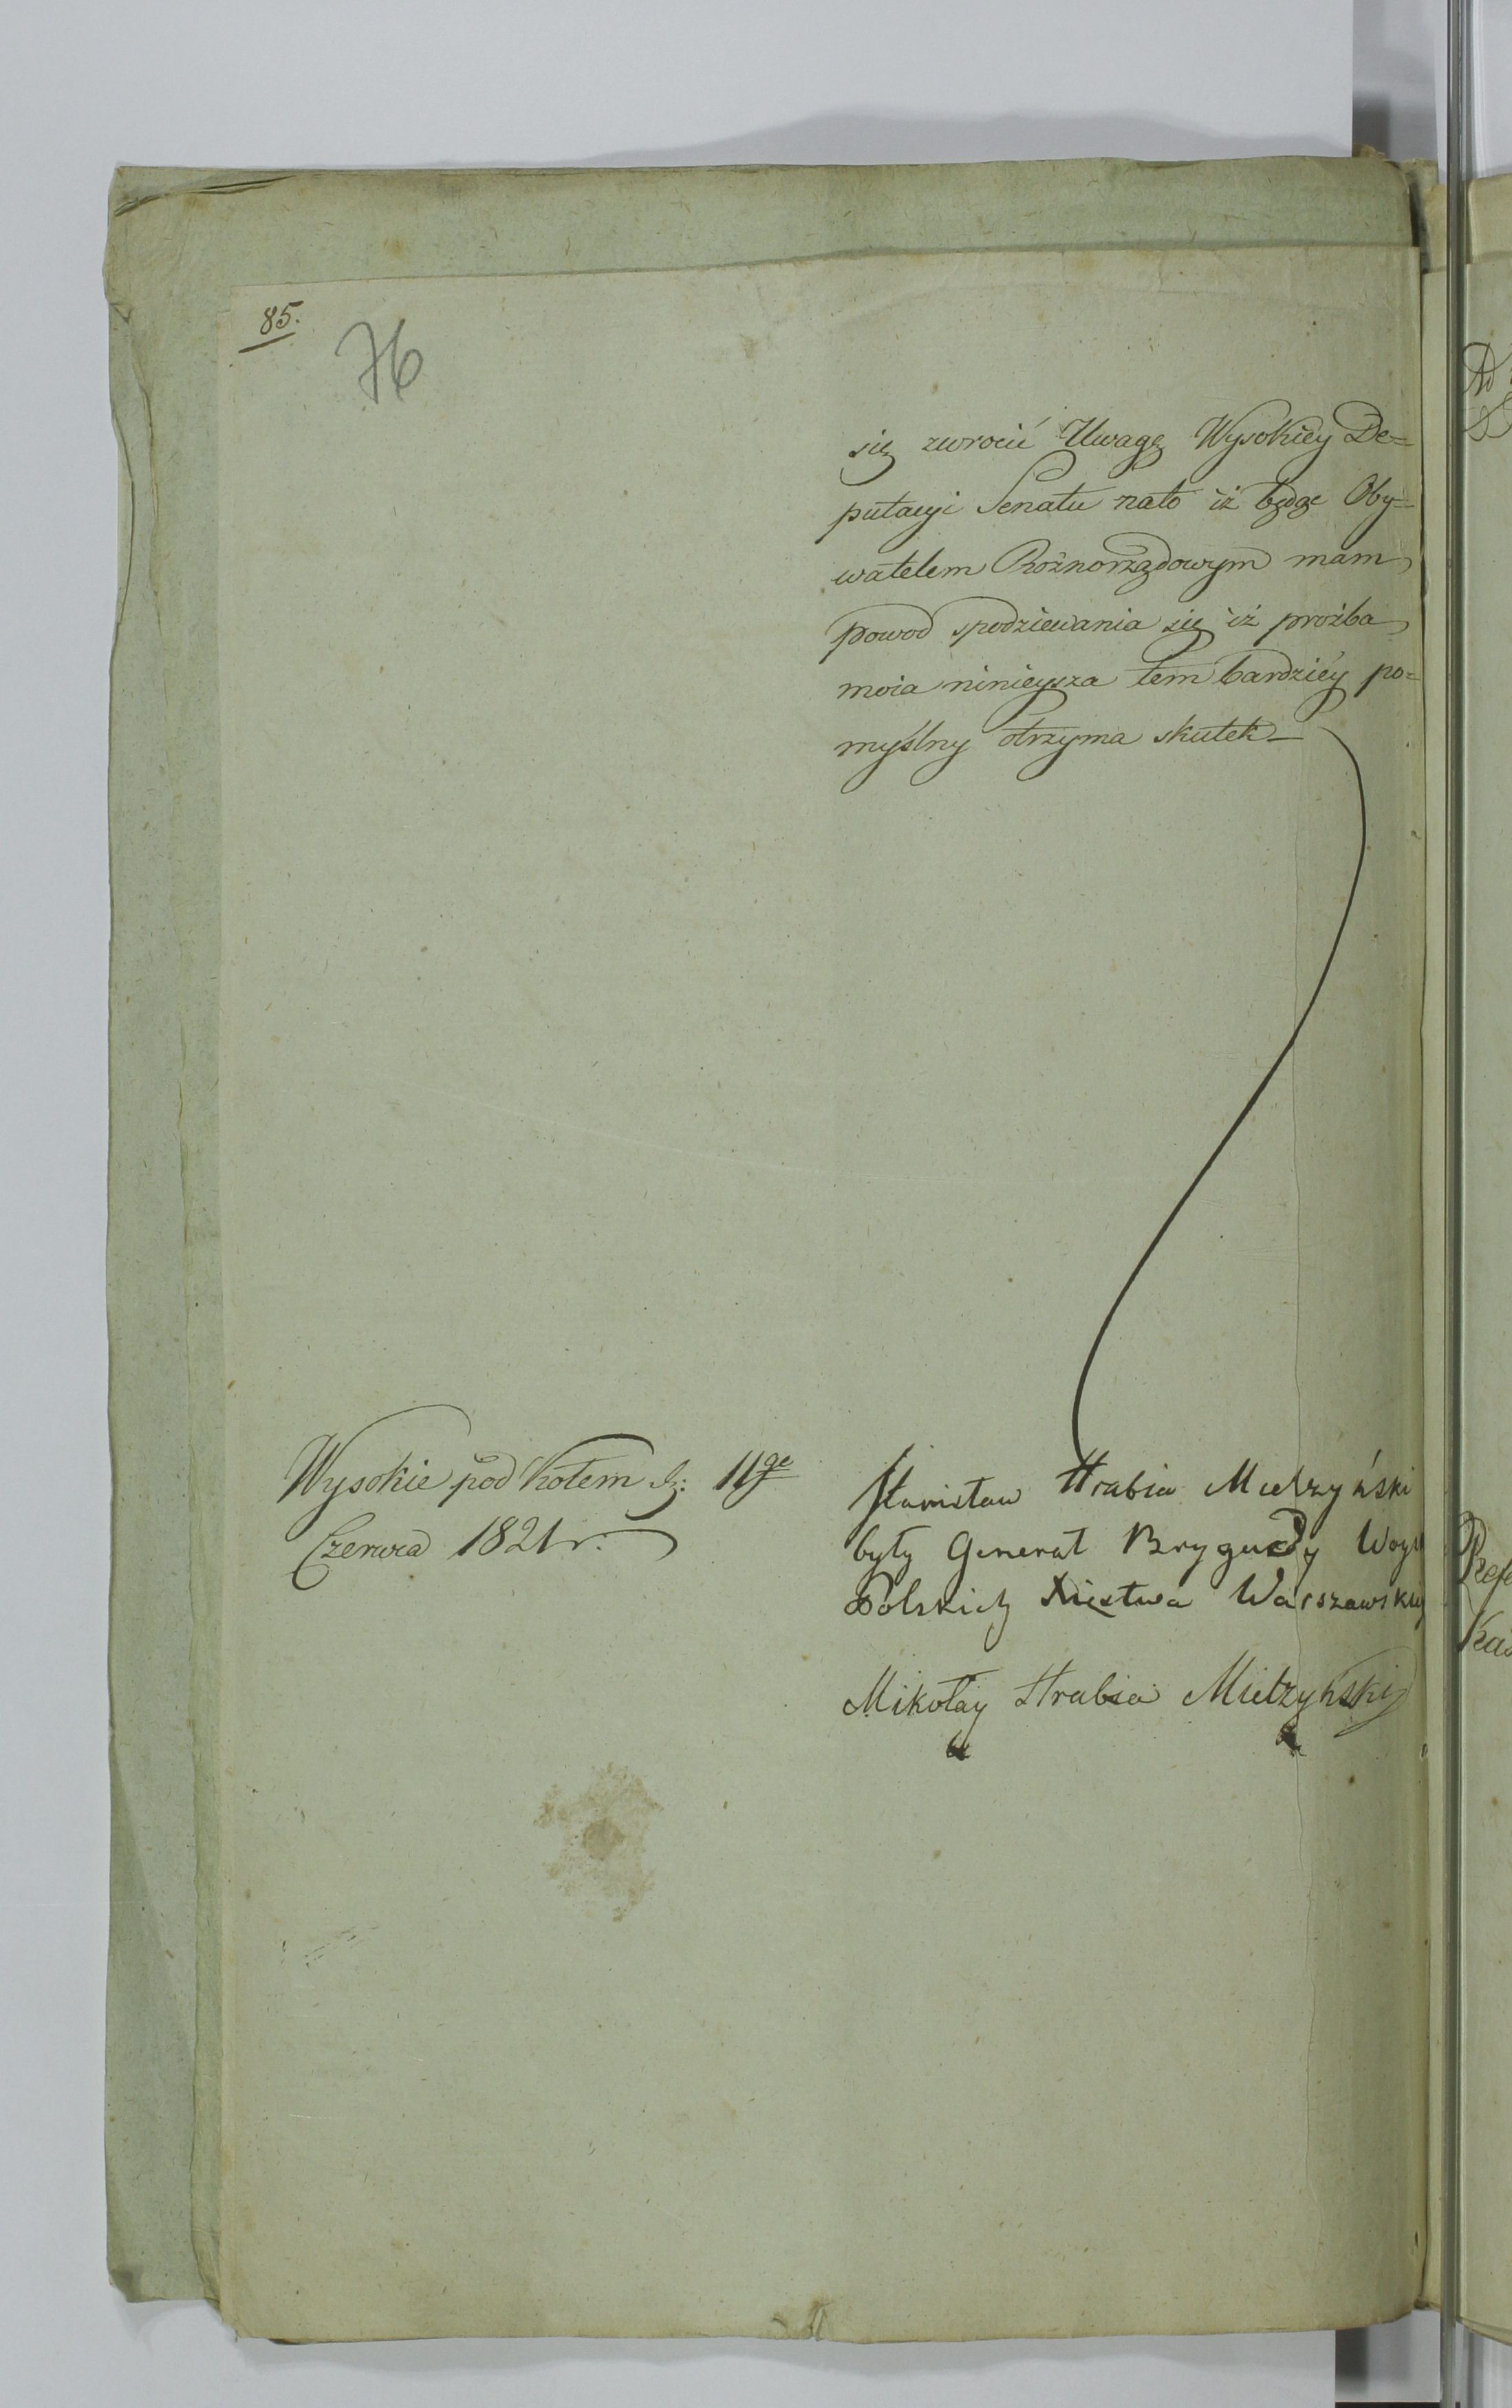 85.
76
się zwrocić Uwagę Wysokiey De=
putacyi Senatu nato iż będąc Oby=
watelem Rożnorządowym mam
powod spodziewania się iż proźba
moia ninieysza tem bardziéy po=
myślny otrzyma skutek_
Wysokie pod Kołem d: 11go
Czerwca 1821 r.
Stanisław Hrabia Mielzyński
były Generał Brygady Woys
Polskich Xięstwa Warszawskie
Mikołay Hrabia Mielżyński